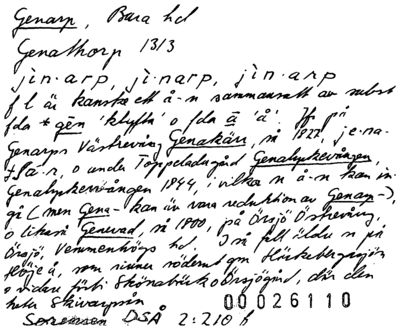 Genarp, Bara hd
Genathorp 1313
jìn·arp, jì·narp, jìn·arp
f l är kanske ett å-n sammansatt av subst
fda *gēn 'klyfta' o fda ā 'å'. Jfr på
Genarps Västrevång Genakärr, nå 1827, je·na-
o under Toppeladugård Genalyckevången
Genalyckevången 1844, i vilka n å-n kan in-
gå (men Gena- kan äv vara reduktion av Genarp-),
o likaså Genevad, nå 1800, på Örsjö Östrevång,
Örsjö, Vemmenhögs hd. I så fall äldre n på
som rinner söderut gm Häckebergasjön
o vidare förbi Skönabäck o Örsjögård, där den
heter Skivarpsån
00026110
Sørensen DSÅ 2:210 f